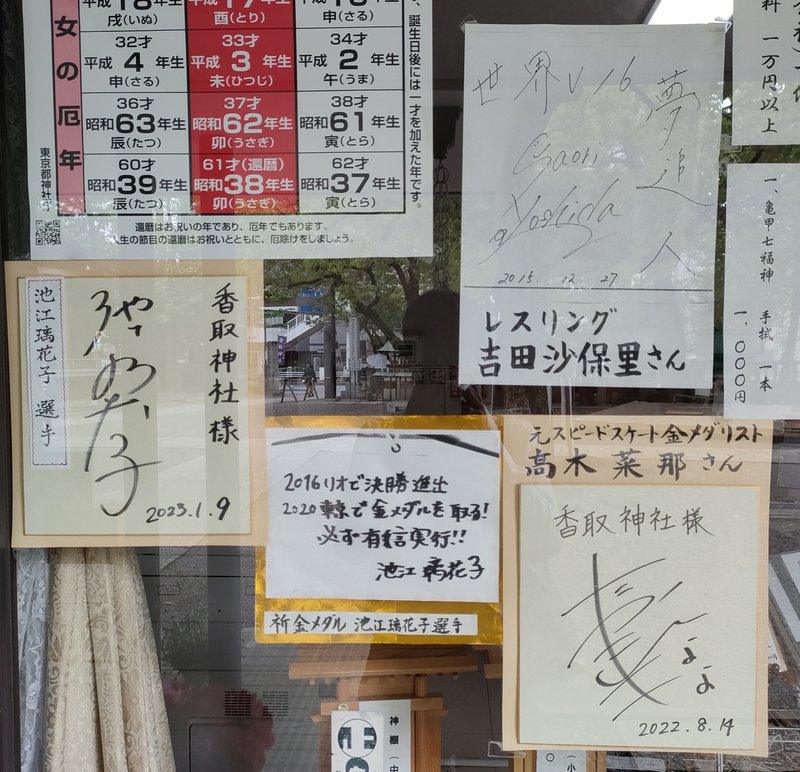 女の厄年
平成18年生
戌(いぬ)
平成17年生
酉(とり)
申(さる)
32才
平成4年生
申(さる)
33才
平成3年生
未(ひつじ)
34才
平成2年生
午(うま)
36才
昭和63年生
辰(たつ)
37才
昭和62年生
卯(うさぎ)
38才
昭和61年生
寅(とら)
60才
昭和39年生
辰(たつ)
61才(還暦)
昭和38年生
卯(うさぎ)
62才
昭和37年生
寅(とら)
、誕生日後には一才を加えた年です。
東京都神社庁
還暦はお祝いの年であり、厄年でもあります。
人生の節目の還暦はお祝いとともに、厄除けをしましょう。
世界V16
夢追人
Saori
Yoshida
2015.12.27
レスリング
吉田沙保里さん
料 一万円以上
一、亀甲七福神 手拭 一本
一、〇〇〇円
香取神社様
池江璃花子 選手
2023.1.9
2016リオで決勝進出
2020東京で金メダルを取る!
必ず有言実行!!
池江璃花子
祈金メダル 池江璃花子選手
元スピードスケート金メダリスト
高木菜那さん
香取神社様
なな
2022.8.14
神棚(中
(小